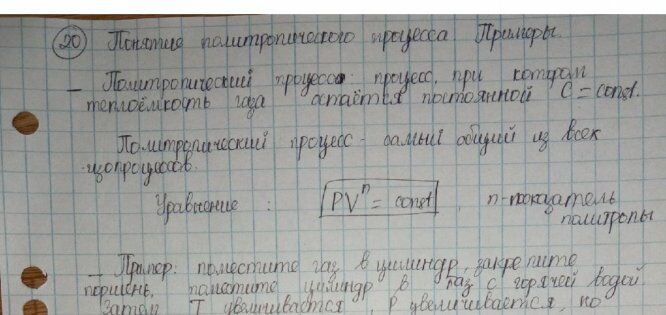 20 Понятие политропического процесса Примеры.
– Политропический процесс: процесс, при котором
теплоёмкость газа остаётся постоянной C = const.
Политропический процесс - самый общий из всех
изопроцессов.
Уравнение : PVⁿ = const , n-показатель
политропы
– Пример: поместите газ в цилиндр, закрепите
поршень, поместите цилиндр в таз с горячей водой.
Затем T увеличивается, P увеличивается, но